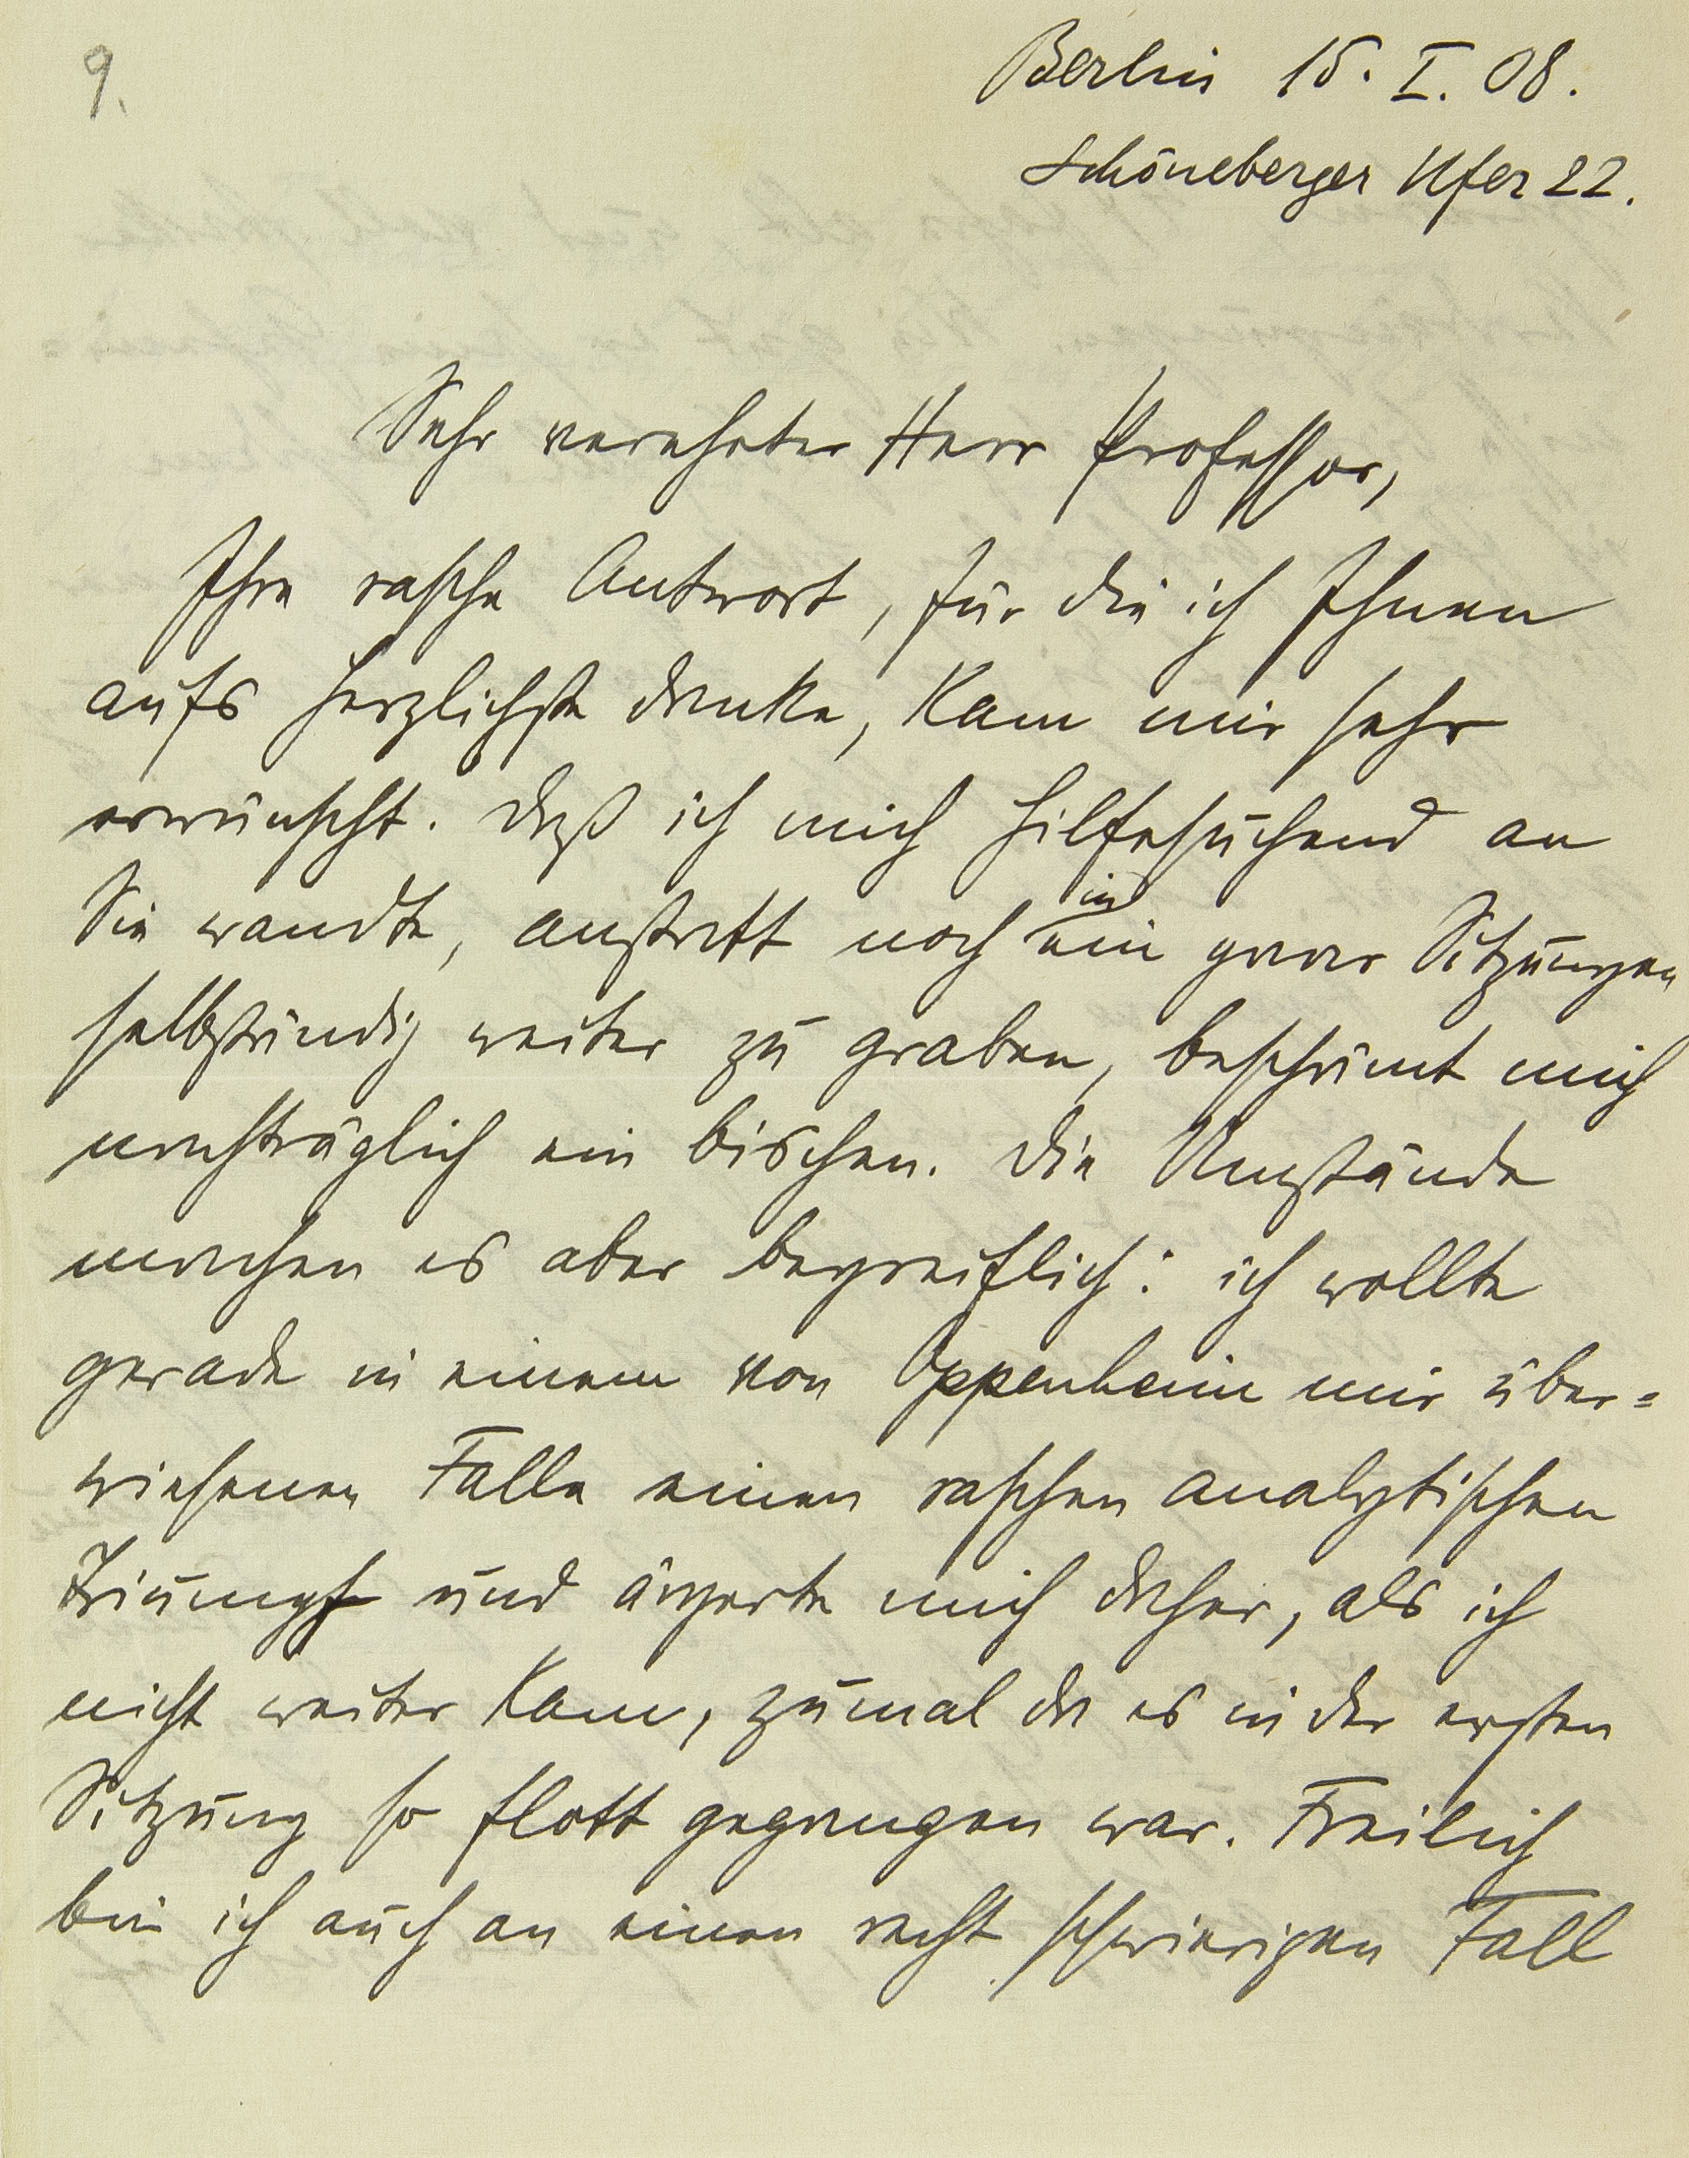 9.
Berlin 15. I. 08.
Schöneberger Ufer 22.
Sehr verehrter Herr Professor,
Ihre rasche Antwort, für die ich Ihnen
aufs herzlichste danke, kam mir sehr
erwünscht. Daß ich mich hilfesuchend an
Sie wandte, anstatt noch in
ein paar Sitzungen
selbständig weiter zu graben, beschämt mich
nachträglich ein bischen. Die Umstände
machen es aber begreiflich: ich wollte
gerade in einem von Oppenheim mir über=
wiesenen Falle einen raschen analytischen
Triumpf und ärgerte mich daher, als ich
nicht weiter kam, zumal da es in der ersten
Sitzung so flott gegangen war. Freilich
bin ich auch an einen recht schwierigen Fall